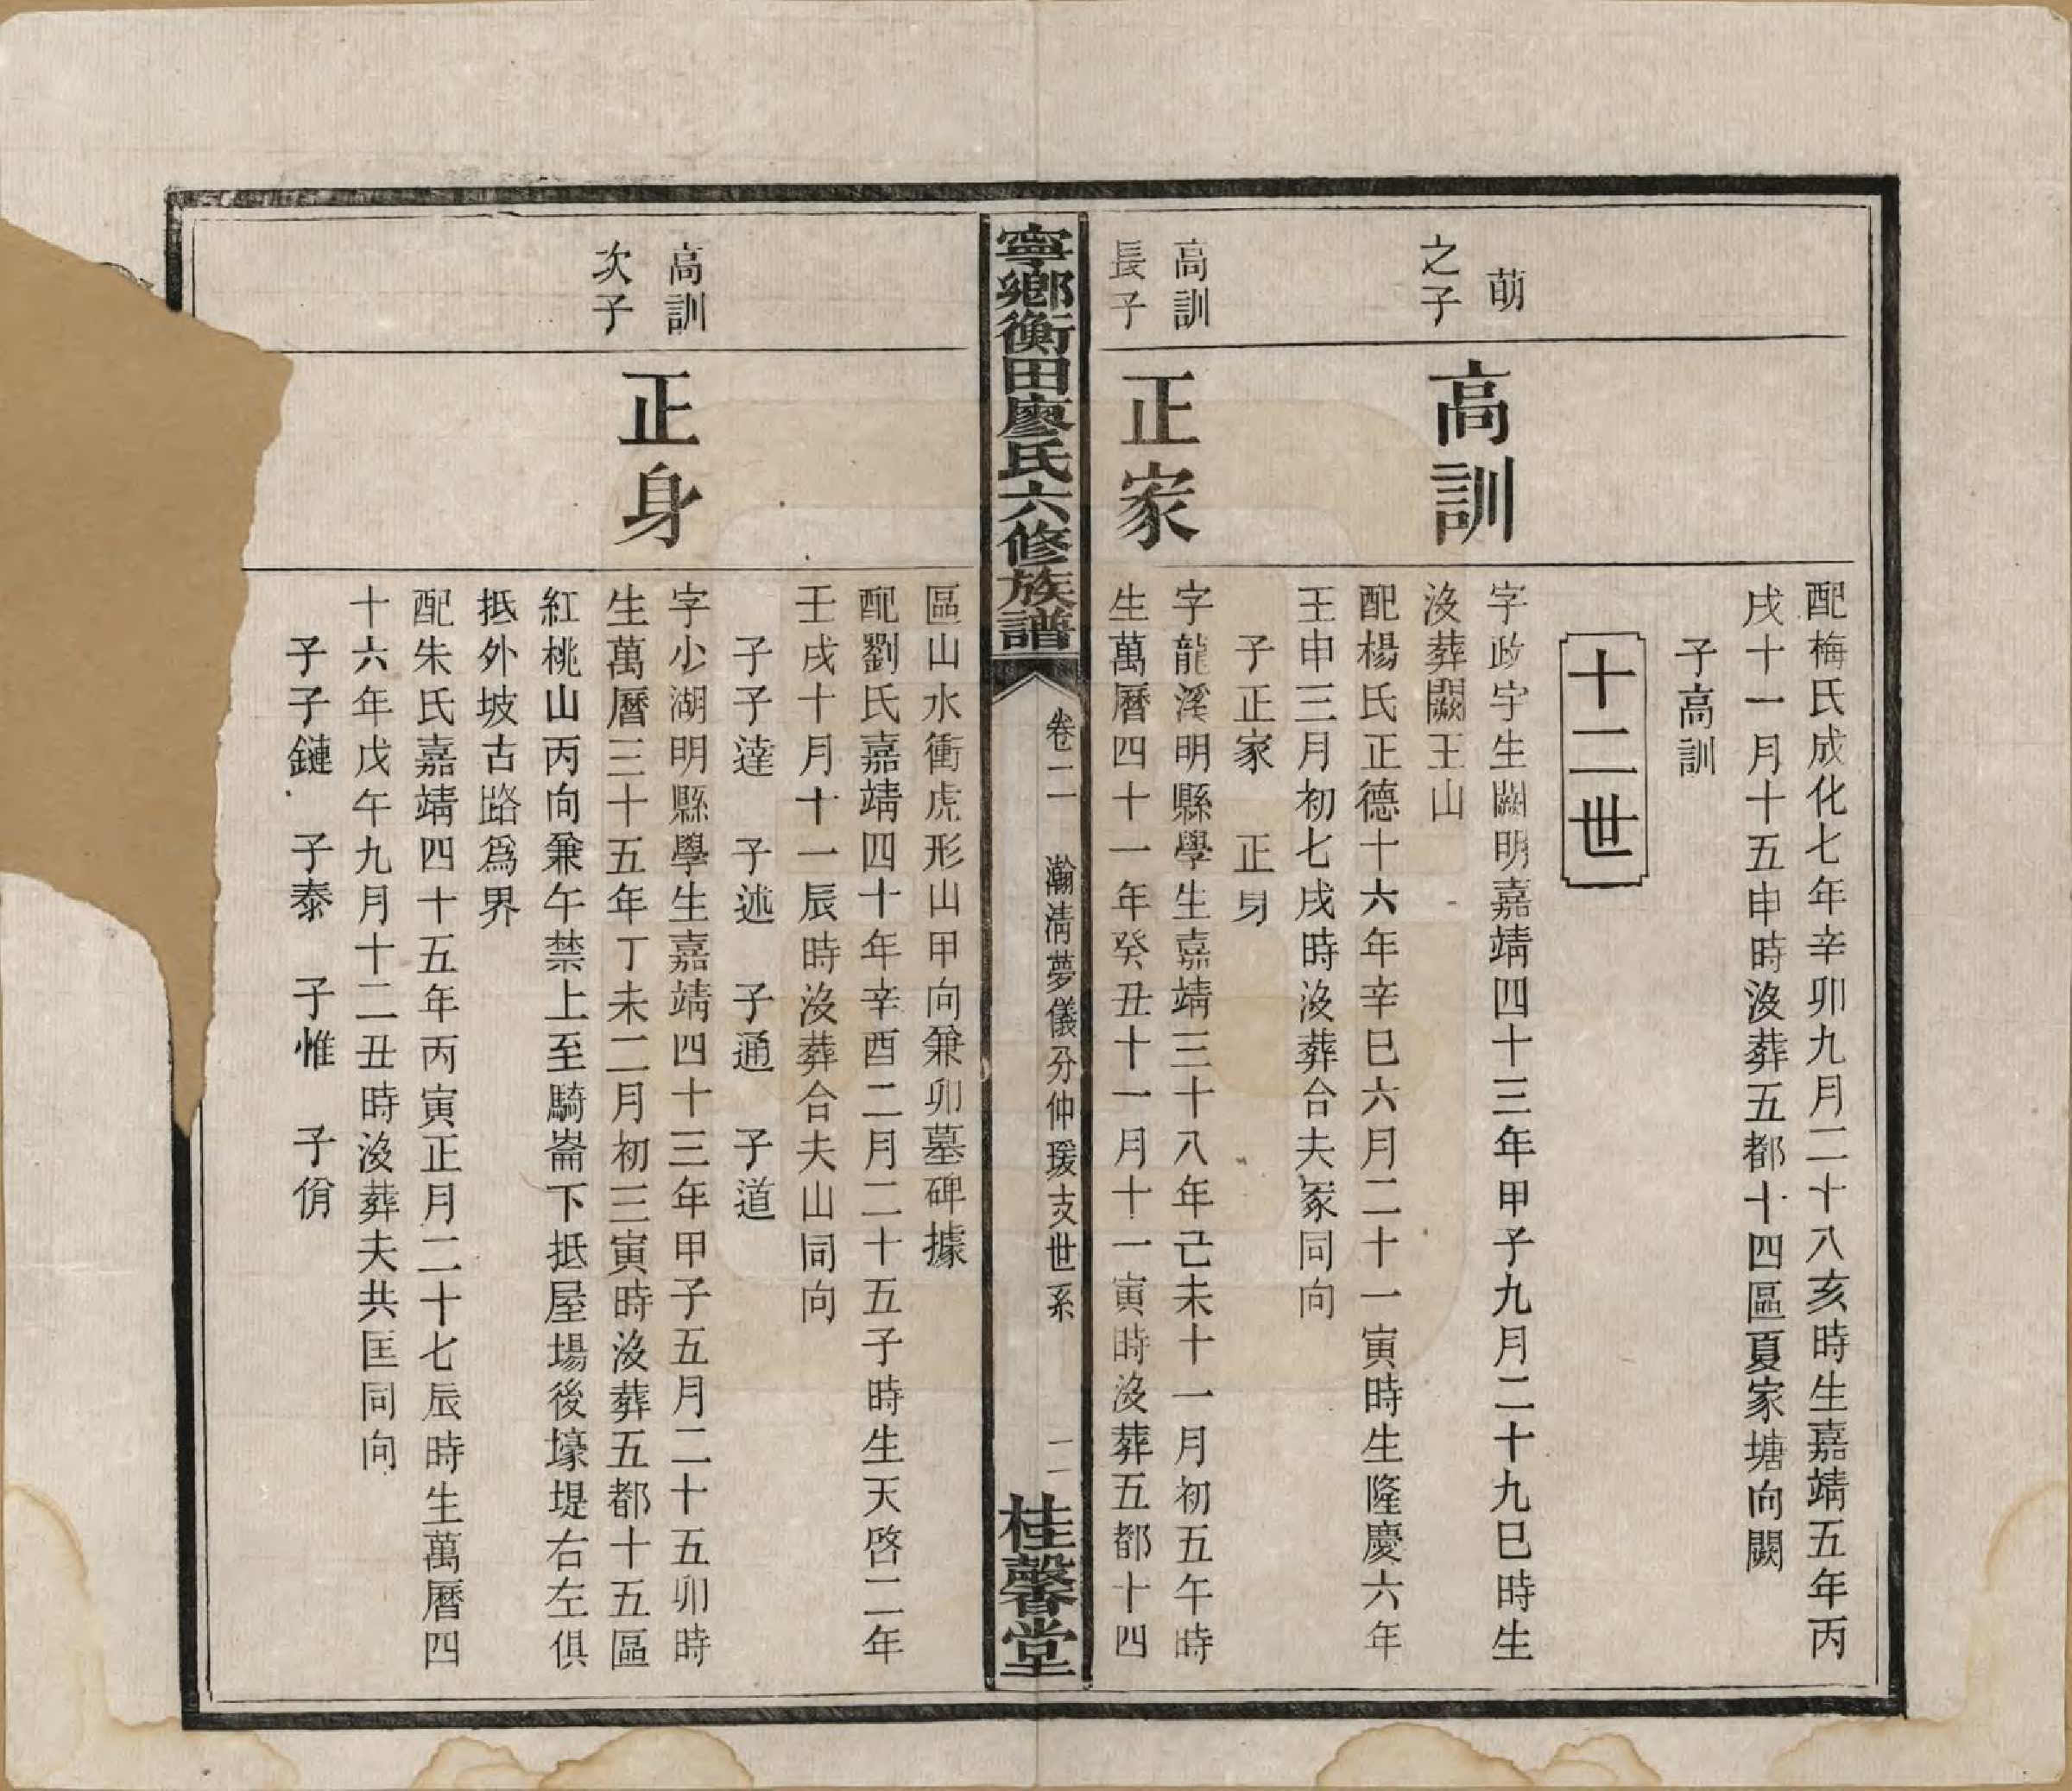 配梅氏成化七年辛卯九月二十八亥時生嘉靖五年丙
戌十一月十五申時沒葬五都十四區夏家塘向闕
子高訓
十二世
萌
之子
高訓
字政宇生闕明嘉靖四十三年甲子九月二十九巳時生
沒葬闕王山
配楊氏正德十六年辛巳六月二十一寅時生隆慶六年
壬申三月初七戌時沒葬合夫冢同向
子正家 正身
高訓
長子
正家
字龍溪明縣學生嘉靖三十八年己未十一月初五午時
生萬曆四十一年癸丑十一月十一寅時沒葬五都十四
寧鄉衡田廖氏六修族譜
卷二 瀚清夢儀分仲瑗支世系 二
桂馨堂
區山水衝虎形山甲向兼卯墓碑據
配劉氏嘉靖四十年辛酉二月二十五子時生天啓二年
壬戌十月十一辰時沒葬合夫山同向
子子達 子述 子通 子道
高訓
次子
正身
字小湖明縣學生嘉靖四十三年甲子五月二十五卯時
生萬曆三十五年丁未二月初三寅時沒葬五都十五區
紅桃山丙向兼午禁上至騎崙下抵屋場後壕堤右左俱
抵外坡古路為界
配朱氏嘉靖四十五年丙寅正月二十七辰時生萬曆四
十六年戊午九月十二丑時沒葬夫共匡同向
子子鏈 子泰 子惟 子佾